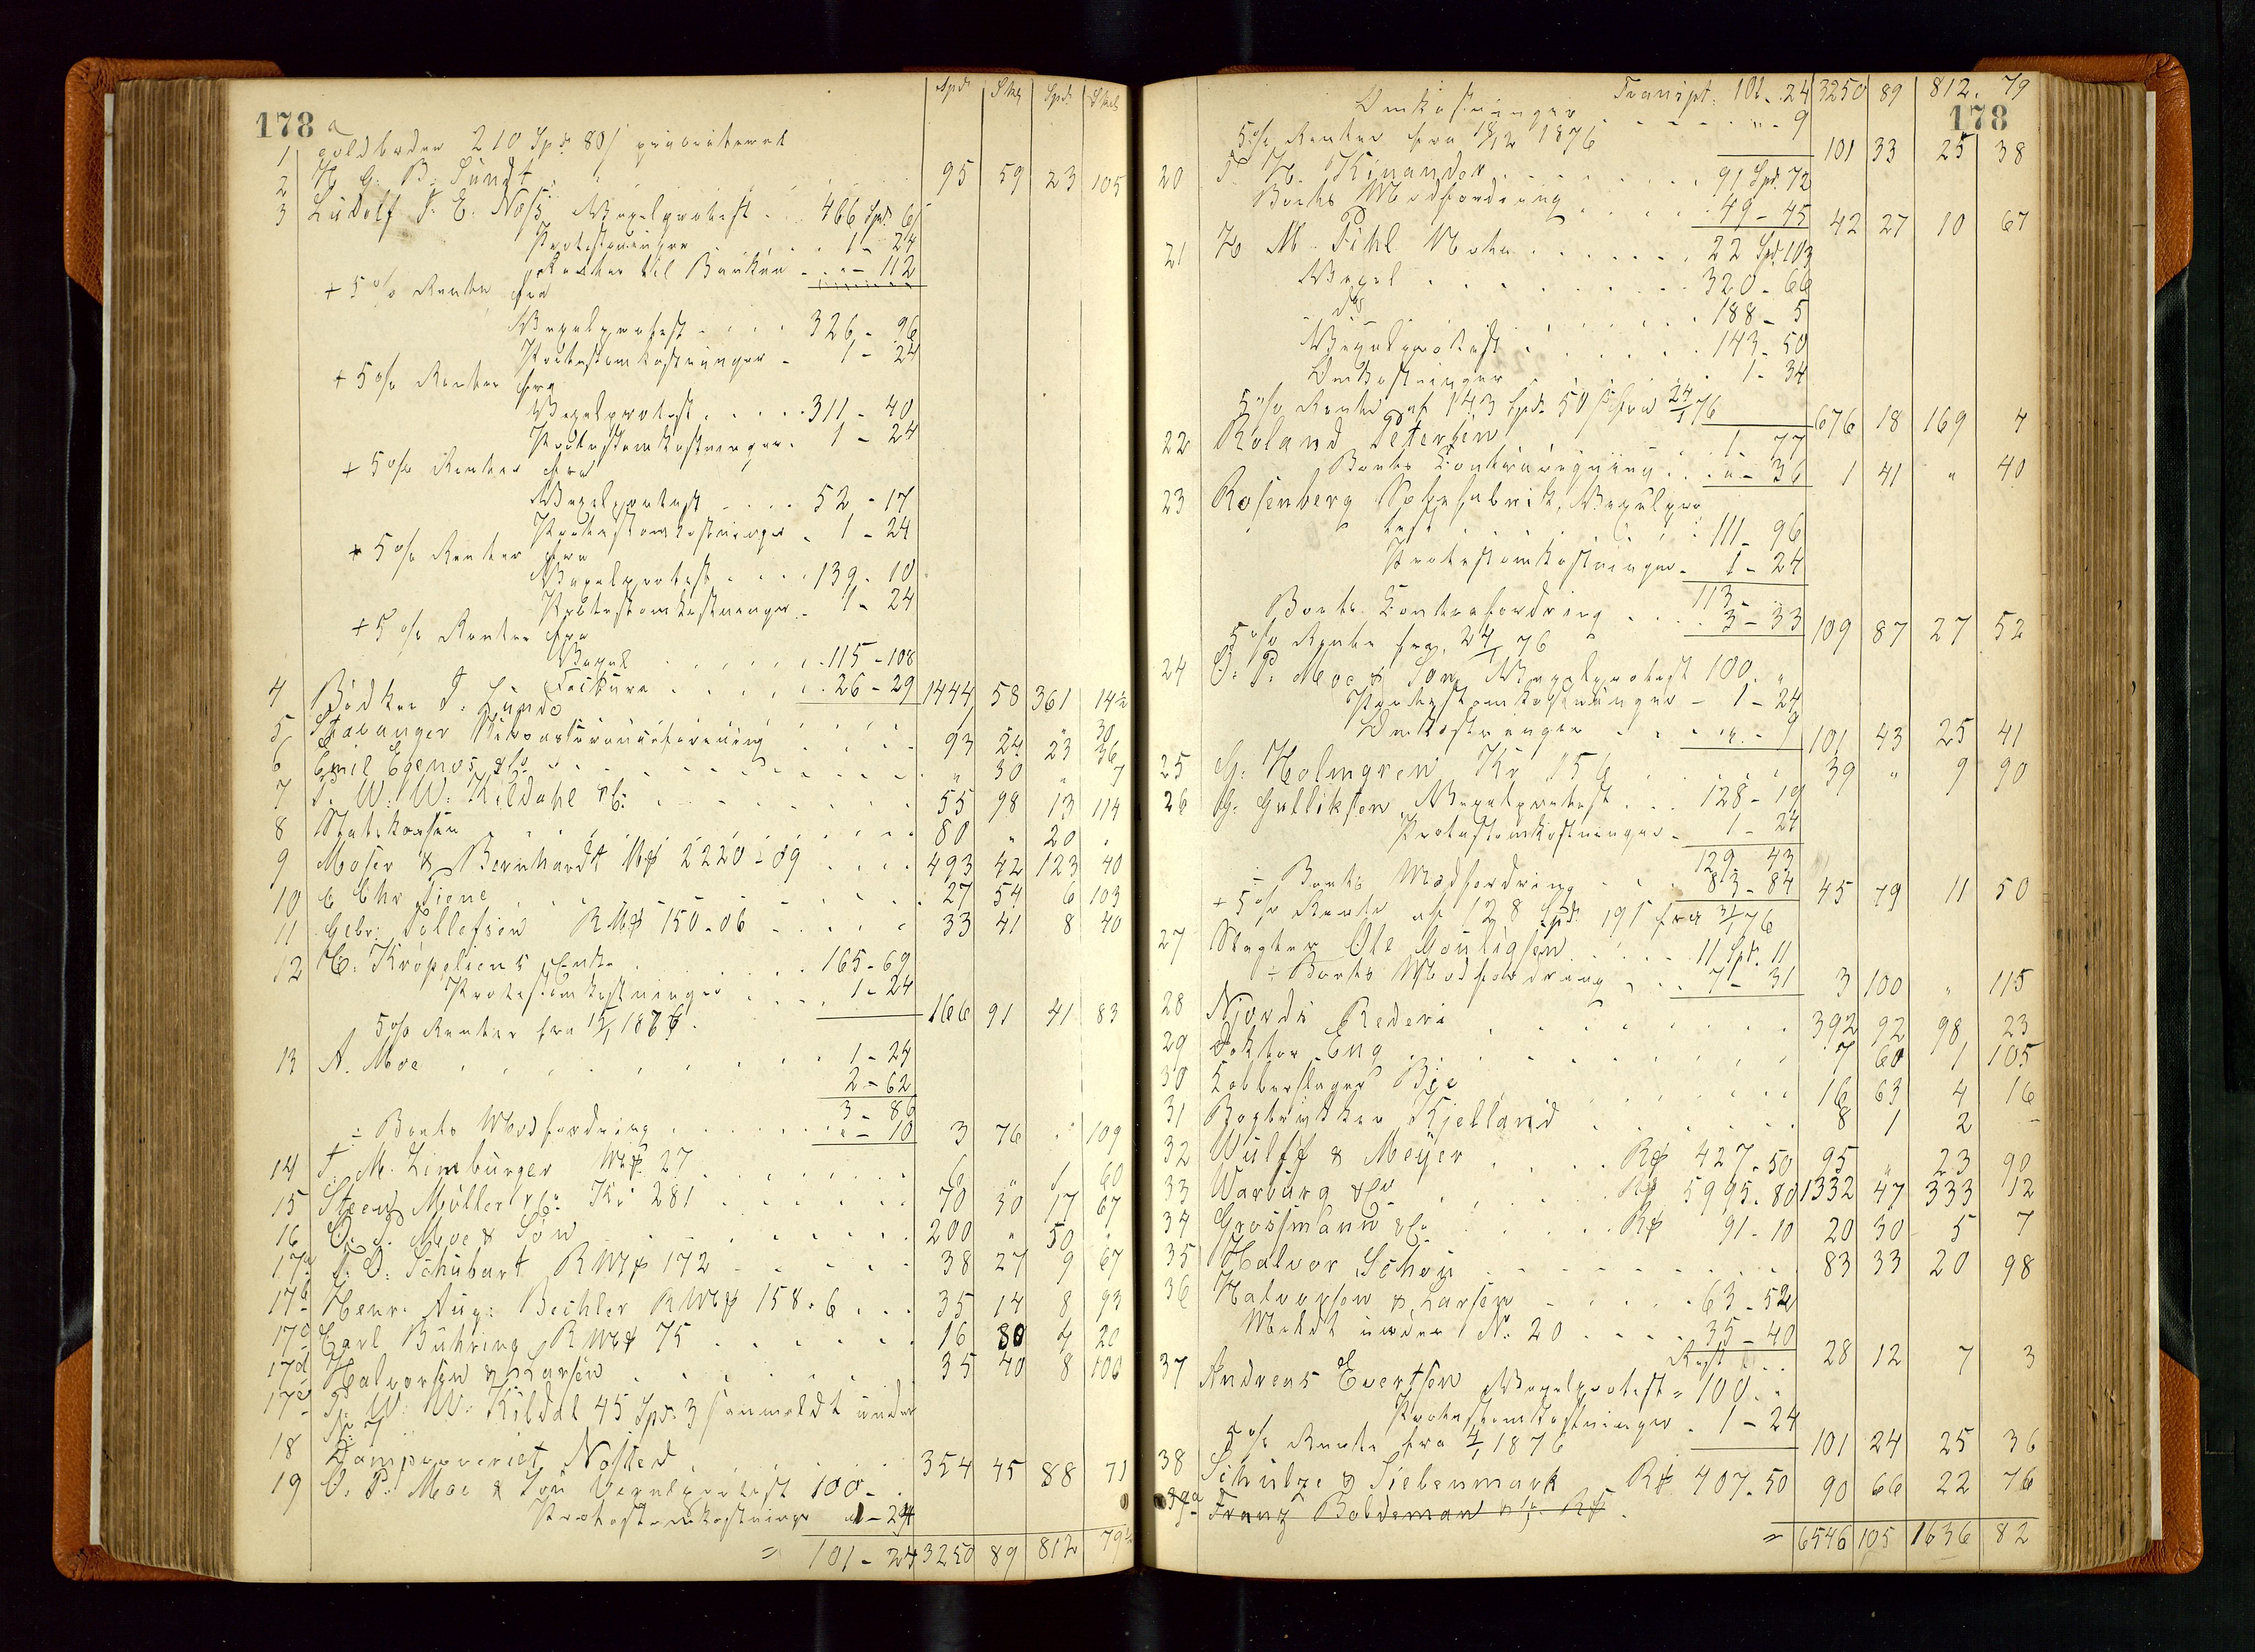 178 a
Spd. Skl. Spd. Skl.
1 210 Spd. 80 s prioriteret
2 H. G. B. Sundt 95 59 23 105
3 Ludolf T. E. Noss. Vexelprotest 466 Spd. 6 s
1 - 24
Renter til Banken " - 112
+ 5 % Rente fra
Vexelprotest 326 - 96
Protestomkostninger 1 - 24
+ 5 % Renter fra
Vexelprotest 311 - 40
Protestomkostninger 1 - 24
+ 5 % Renter fra
Vexelprotest 52 - 17
Protestomkostninger 1 - 24
+ 5 % Renter fra
Vexelprotest 139 - 10
Protestomkostninger 1 - 24
+ 5 % Renter fra
Vexel 115 - 108
Factura 26 - 29 1444 58 361 14½
4 Bødker J. Lunde " 30
5 Stavanger 93 24 23 36
6 Emil Egenes & Co " 30 " 7
7 T. W. W. Kildahl & C. 55 98 13 114
8 Statskassen 80 " 20 "
9 Moser & Bernhardt M# 2220 - 09 493 42 123 40
10 C Chr Tione 27 54 6 103
11 Gebr. Tollefsen RM# 150 - 06 33 41 8 40
12 C. Kröpeliens Enke 165 - 69
Protestomkostninger 1 - 24 166 91 41 83
5 % Renter fra 15/1 1876.
13 A. Moe 1 - 24
2 - 62
3 - 86
÷ Boets Modfordring " - 10 3 76 " 109
14 J. M. Limburger M# 27 6 " 1 60
15 Steen Müller & C. Kr 281 70 30 17 67
16 O. P. Moe & Søn 200 " 50 "
17a J. O. Schubart RM# 172 38 27 9 67
17b Henr. Aug. Bechler RM# 158 - 6 35 14 8 93
17c Carl Bühring RM# 75 16 80 4 20
17d Halvorsen & Larsen 35 40 8 100
17e T. W. W. Kildal 45 Spd. 3 s anmeldt under
No 7
18 Dampveveriet Nofted 354 45 88 71
19 O. P. Moe & Søn Vexelprotest 100 - "
Protestomkostninger 1 - 24
= 101 - 24 3250 89 812 79½
178
Transpt. 101 - 24 3250 89 812. 79
Omkostninger " - 9
5 % Renter fra 18/12 1876 101 33 25 38
20 T H. Kinander 91 Spd. 72
Boets Modfordring 49 - 45 42 27 10 67
21 H M. Pihl Nota 22 Spd. 103
Vexel 320 - 66
do 188 - 5
Vexelprotest 143 - 50
Omkostninger 1 - 34
5 % Rente af 143 Spd. 50 s fra 24/1 76 676 18 169 4
22 Roland Petersen 1 - 77
Boets Contraregning " - 36 1 41 " 40
23 Rosenberg Sæbefabrik, Vexelpro
test 111 - 96
Protestomkostninger 1 - 24
113 "
Boets Contrafordring 3 - 33 109 87 27 52
5 % Rente fra 24/1 76
24 O. P. Moe & Søn, Vexelprotest 100 - "
Protestomkostninger - 1 - 24
Omkostninger " - 9 101 43 25 41
25 G. Holmgren Kr 156 39 " 9 90
26 G. Gulliksen Vexelprotest 128 - 19
Protestomkostninger 1 - 24
129 - 43
÷ Boets Modfordring 83 - 84 45 79 11 50
+ 5 % Rente af 128 Spd. 19 s fra 31/1 76
27 Slagter Ole Gouligsen 11 Spd. 11
÷ Boets Modfordring 7 - 31 3 100 " 115
28 Njords Rederi 392 92 98 23
29 Doktor Eng 7 60 1 105
30 Kobberslager Bie 16 63 4 16
31 Bogtrykker Kjelland 8 1 2 -
32 Wulff & Meyer R# 427 - 50 95 " 23 90
33 Warburg & Co R# 5995 - 80 1332 47 333 12
34 Grossmann & Co R# 91 - 10 20 30 5 7
35 Halvor Schou 83 33 20 98
36 Halvorsen & Larsen 63 - 52
Meldt under No 20 35 - 40
Rest 28 12 7 3
37 Andreas Evertsen Vexelprotest = 100 - "
Protestomkostninger 1 - 24
5 % Rente fra 4/1 1876 101 24 25 36
38 Schulze & Siebenmark R# 407 - 50 90 66 22 76
39a Franz Boldeman & C. R#
= 6546 105 1636 82